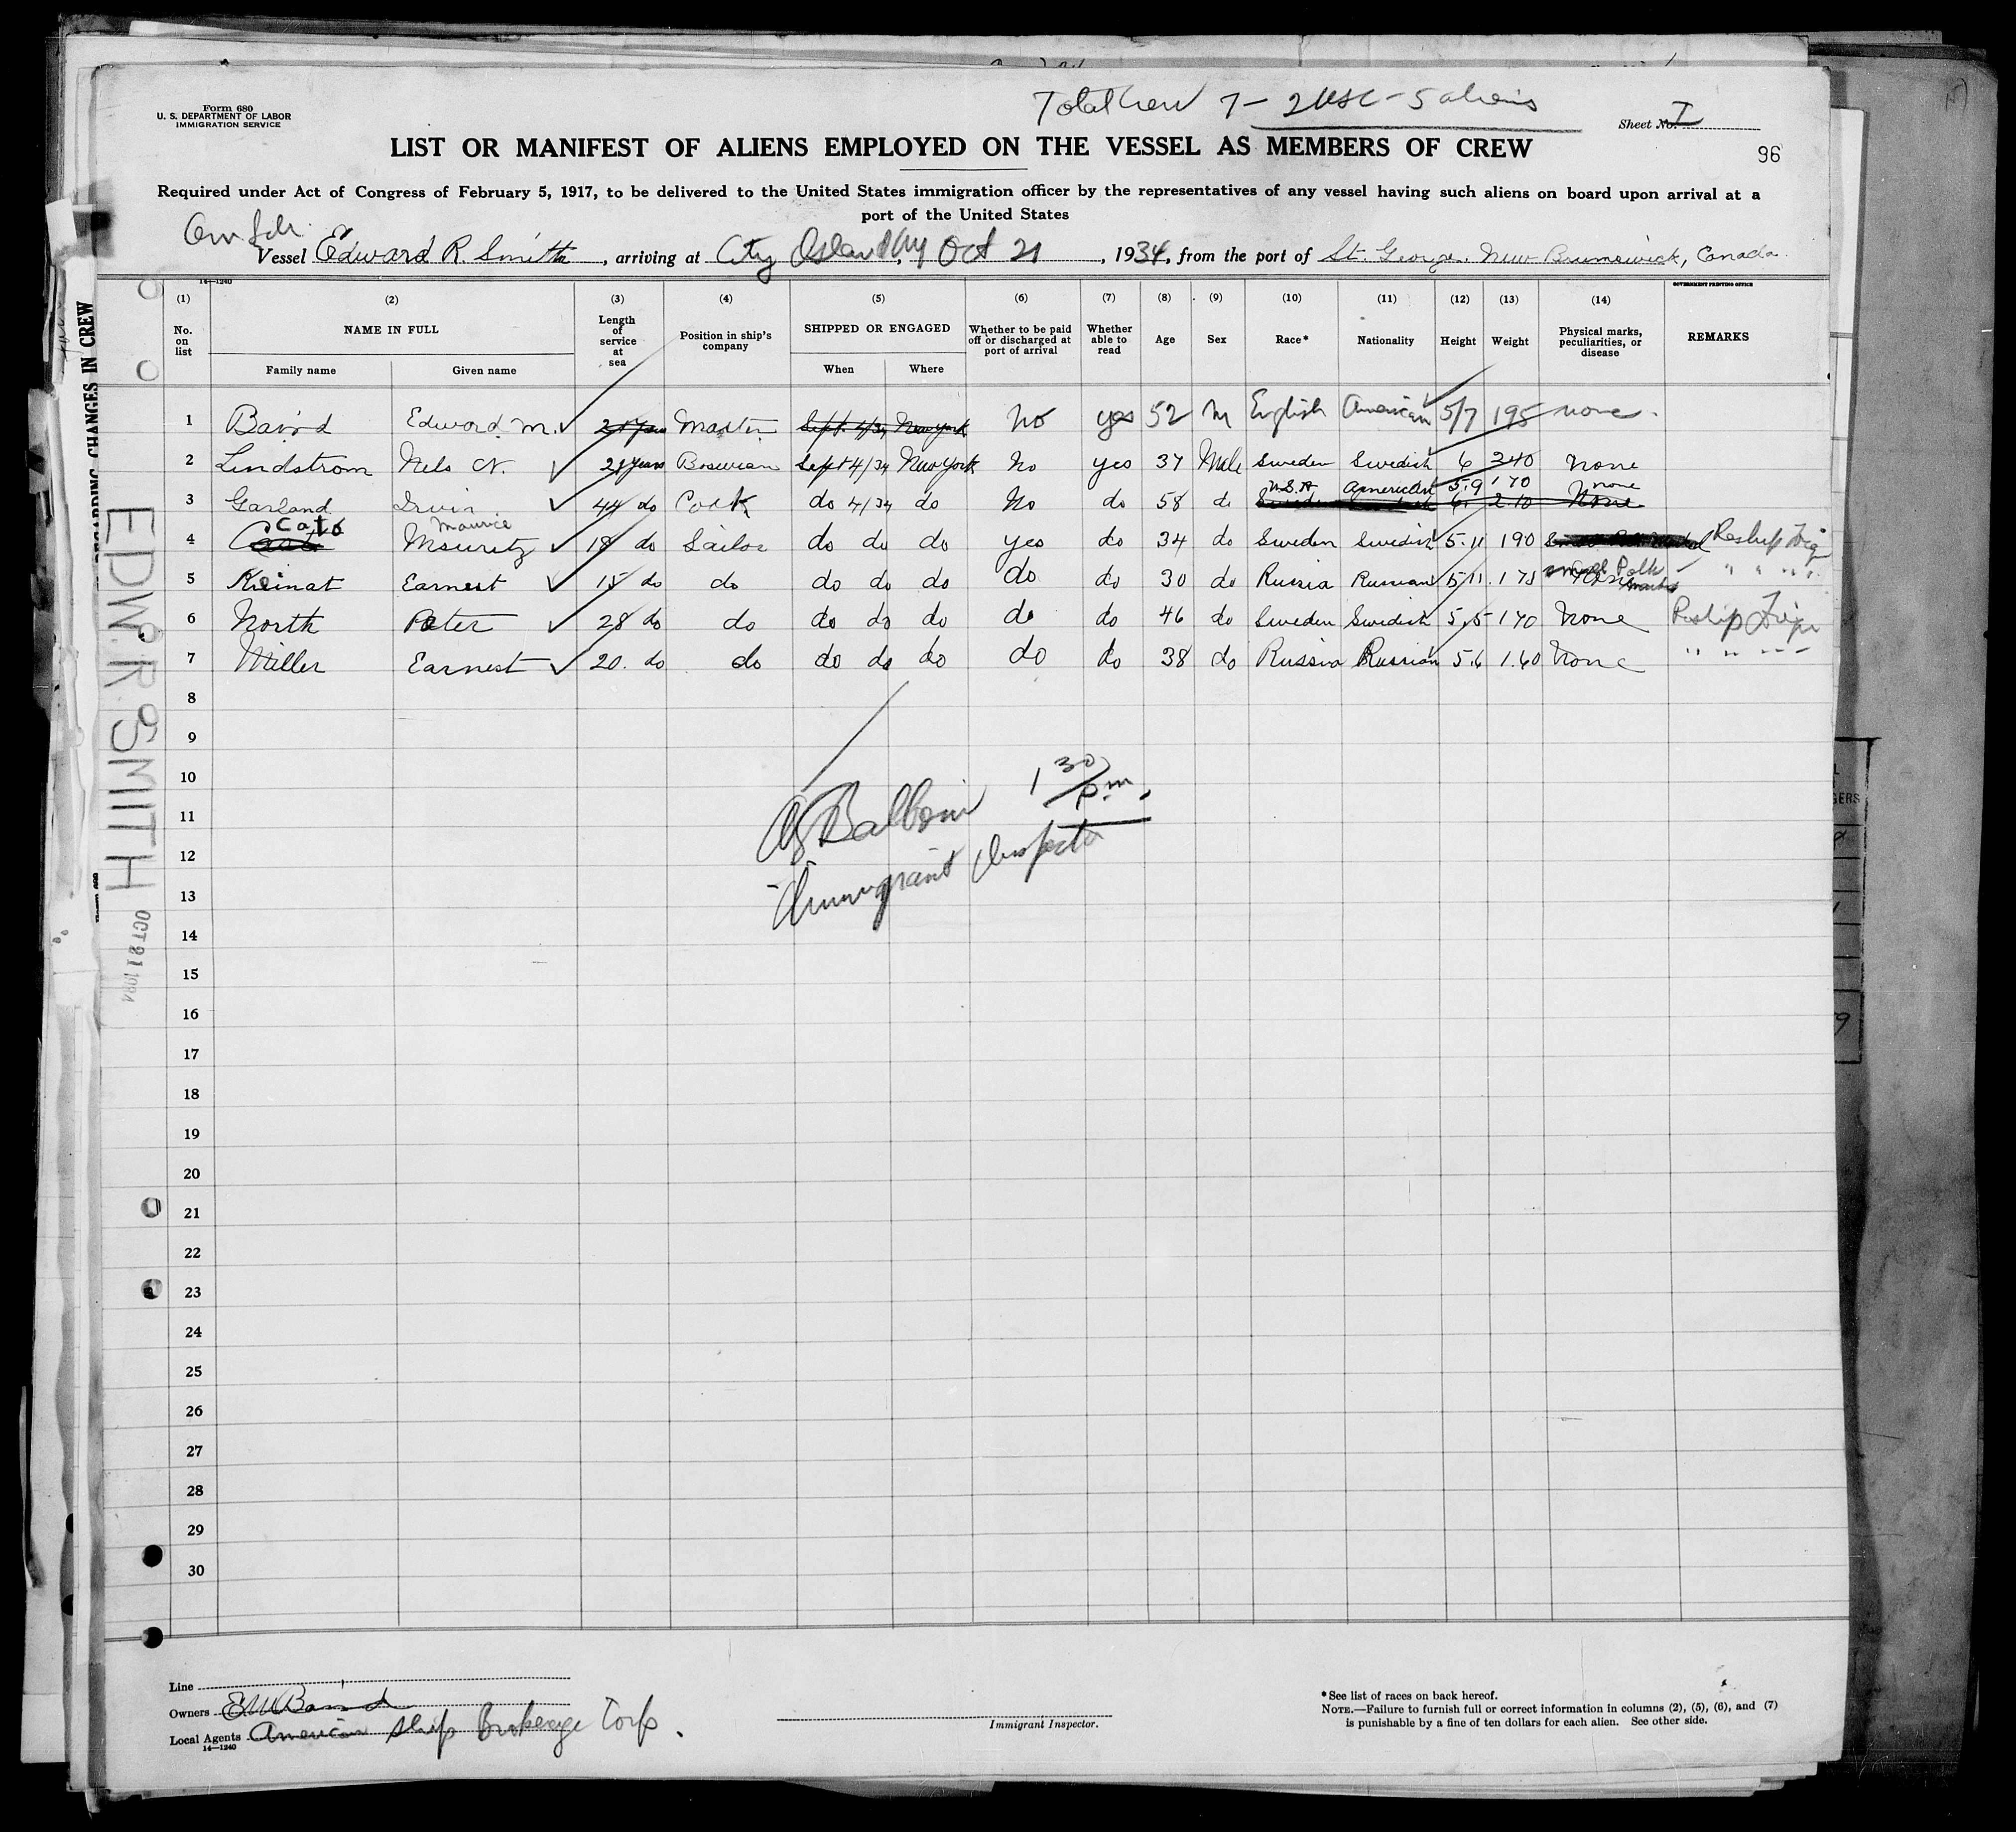 Total Crew 7 - 2 USC - 5 aliens
Form 680
U. S. DEPARTMENT OF LABOR
IMMIGRATION SERVICE
Sheet No. I
LIST OR MANIFEST OF ALIENS EMPLOYED ON THE VESSEL AS MEMBERS OF CREW
96
Required under Act of Congress of February 5, 1917, to be delivered to the United States immigration officer by the representatives of any vessel having such aliens on board upon arrival at a
port of the United States
Am Sch.
Vessel Edward R. Smith, arriving at City Island NY Oct 21, 1934, from the port of St. George. New Brunswick, Canada.
14—1240
GOVERNMENT PRINTING OFFICE
(1) (2) (3) (4) (5) (6) (7) (8) (9) (10) (11) (12) (13) (14)
No. on list NAME IN FULL Length of service at sea Position in ship's company SHIPPED OR ENGAGED Whether to be paid off or discharged at port of arrival Whether able to read Age Sex Race* Nationality Height Weight Physical marks, peculiarities, or disease REMARKS
Family name Given name When Where
1 Baird Edward M. Master Sept. 4/34 New York No yes 52 M English American 5/7 195 none.
2 Lindstrom Nels N. 21 years Boswian Sept 4/34 New York No yes 37 Male Sweden Swedish 6 240 None
U.S.A American 5.9 170 none
3 Garland Irvin 44 do Cook do 4/34 do No do 58 do Sweden Swedish 6. 210 None
Cato Maurice
4 Mauritz 18 do Sailor do do do yes do 34 do Sweden Swedish 5.11 190 Reship Frgn
5 Keinat Earnest 15 do do do do do do do 30 do Russia Russian 5/11. 175 small Polk marks " " " "
6 North Peter 28 do do do do do do do 46 do Sweden Swedish 5,5 170 None Reship Frgn
7 Miller Earnest 20. do do do do do do do 38 do Russia Russian 5.6 1.60 None " " " "
8
9
10
1 30 p.m.
11
12
Immigrant Inspector
13
14
15
16
17
18
19
20
21
22
23
24
25
26
27
28
29
30
REGARDING CHANGES IN CREW
EDW. R. SMITH
OCT 21 1934
Line
Owners E M Baird
Local Agents American Ship Brokerage Corp.
14—1240
Immigrant Inspector.
*See list of races on back hereof.
NOTE.—Failure to furnish full or correct information in columns (2), (5), (6), and (7)
is punishable by a fine of ten dollars for each alien. See other side.